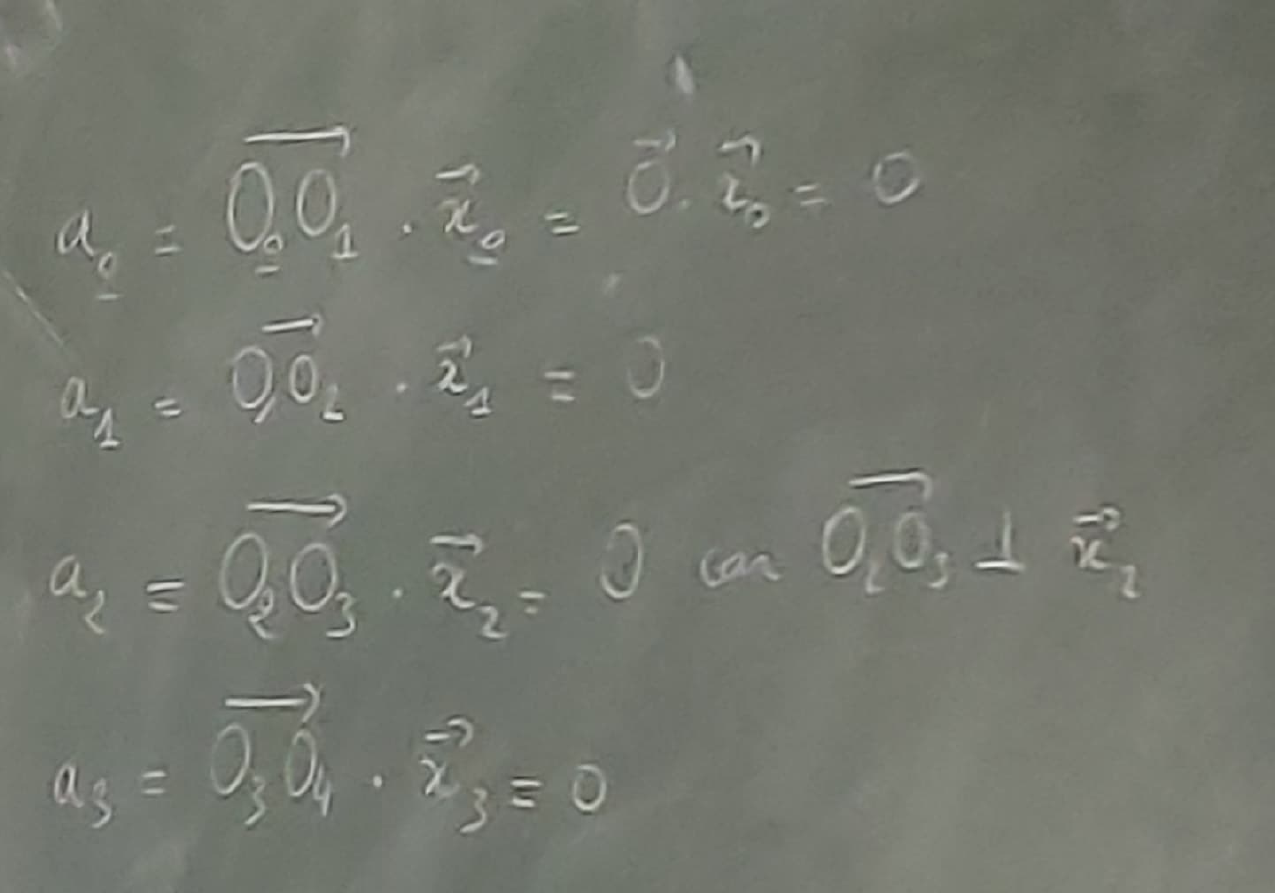 a₀ = \overrightarrow{O₀O₁} · \vec{x}₀ = \vec{0} · \vec{x}₀ = 0
a₁ = \overrightarrow{O₁O₂} · \vec{x}₁ = 0
a₂ = \overrightarrow{O₂O₃} · \vec{x}₂ = 0 car \overrightarrow{O₂O₃} ⊥ \vec{x}₂
a₃ = \overrightarrow{O₃O₄} · \vec{x}₃ = 0